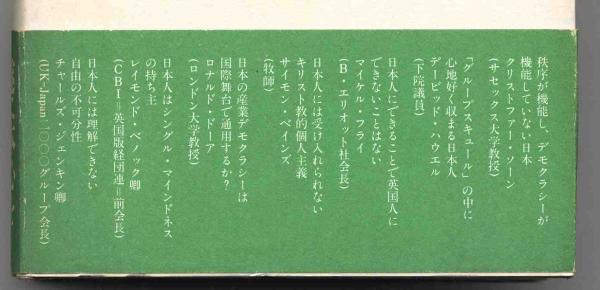 秩序が機能し、デモクラシーが
機能していない日本
クリストファー・ソーン
(サセックス大学教授)
「グループスキュール」の中に
心地好く収まる日本人
デービッド・ハウエル
(下院議員)
日本人にできることで英国人に
できないことはない
マイケル・フライ
(B・エリオット社会長)
日本人には受け入れられない
キリスト教的個人主義
サイモン・ベインズ
(牧師)
日本の産業デモクラシーは
国際舞台で通用するか?
ロナルド・ドーア
(ロンドン大学教授)
日本人はシングル・マインドネス
の持ち主
レイモンド・ペノック卿
(CBI=英国版経団連=前会長)
日本人には理解できない
自由の不可分性
チャールズ・ジェンキン卿
(UK-Japan二〇〇〇グループ会長)